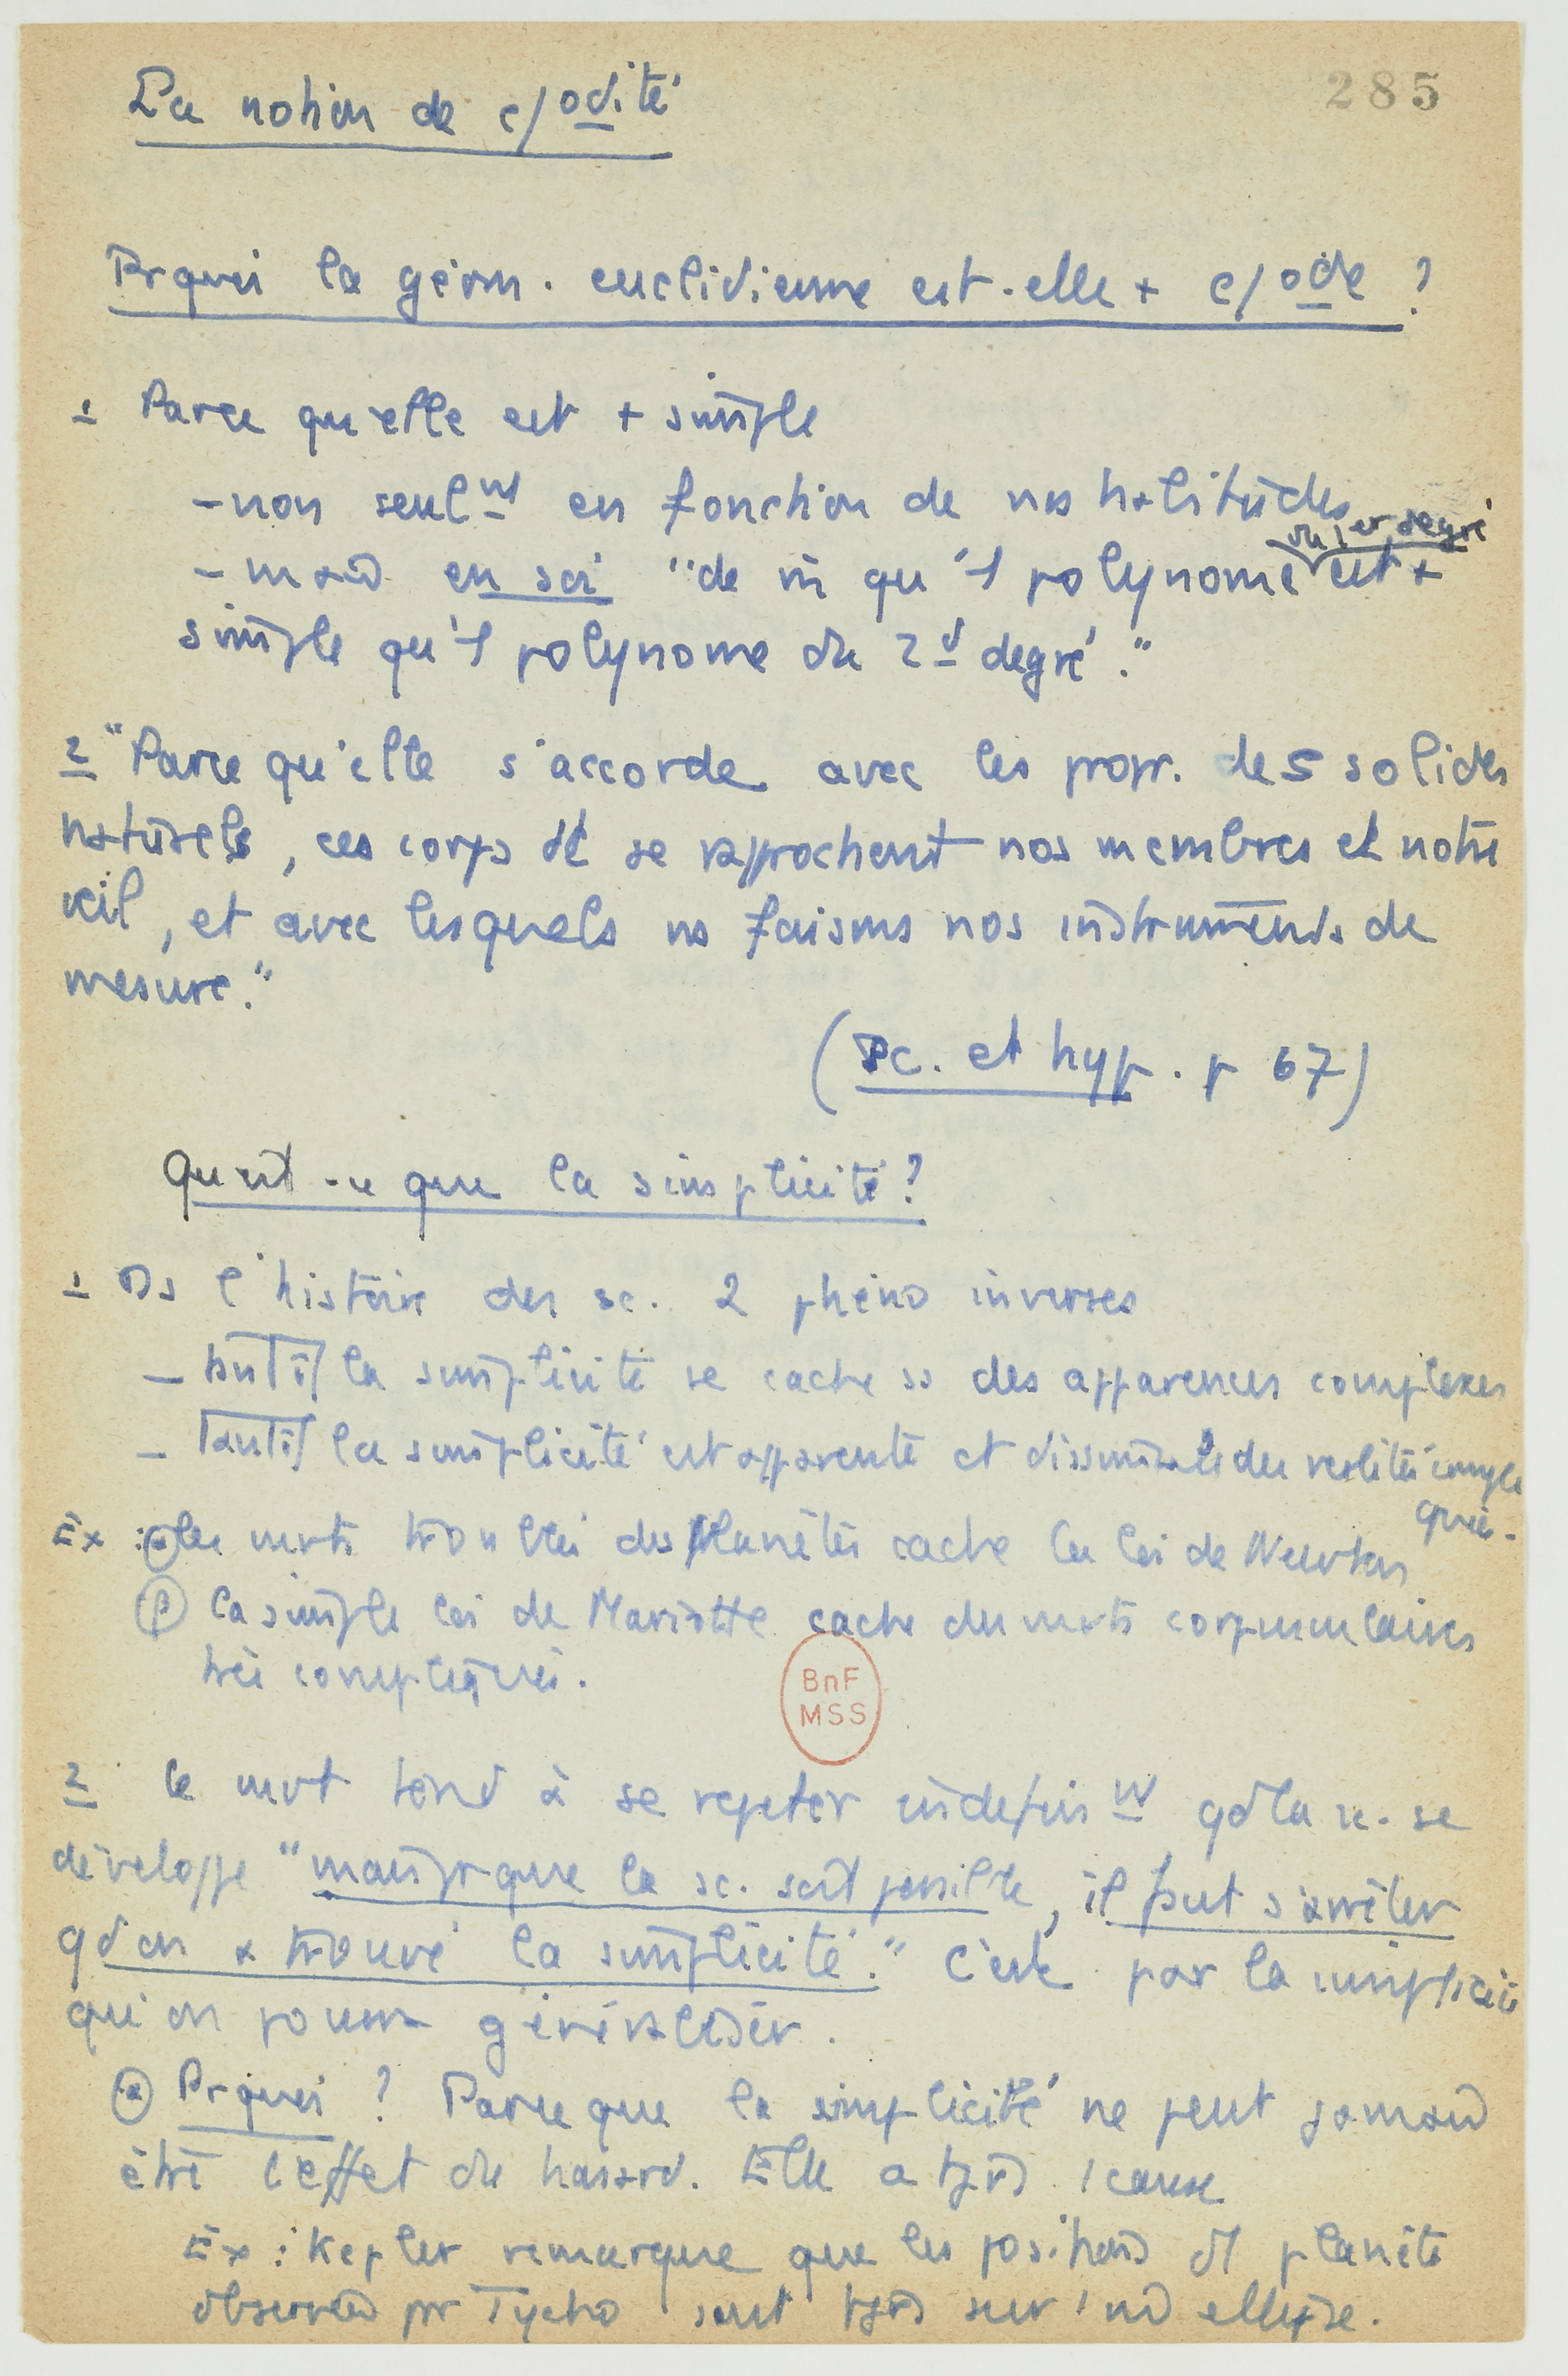 285
La notion de c/odité
Pr quoi la géom. euclidienne est-elle + c/ode ?
1 Parce qu'elle est + simple
- non seulmt en fonction de nos habitudes
- mais en soi "de m qu'1 polynome du 1er degré est +
simple qu'1 polynome du 2d degré."
2 "Parce qu'elle s'accorde avec les propr. des solides
naturels, ces corps dt se rapprochent nos membres et notre
œil, et avec lesquels ns faisons nos instruments de
mesure."
(Sc. et hyp. p 67)
Qu'est-ce que la simplicité ?
1 Ds l'histoire des sc. 2 phéno inverses
- tantôt la simplicité se cache ss des apparences complexes
- tantôt la simplicité est apparente et dissimule des réalités compli
quées.
Ex : α les mvts troublés des planètes cache la loi de Newton
β la simple loi de Mariotte cache des mvts corpusculaires
très compliqués.
BnF
MSS
2 Le mvt tend à se repeter indefinimt qd la sc. se
développe "mais pr que la sc. soit possible, il faut s'arrêter
qd on a trouvé la simplicité." C'est par la simplicité
qu'on pourra généraliser.
α Pr quoi ? Parce que la simplicité ne peut jamais
être l'effet du hasard. Elle a tjrs 1 cause
Ex : Kepler remarque que les positions d'1 planète
observées pr Tycho sont tjrs sur 1 m ellipse.